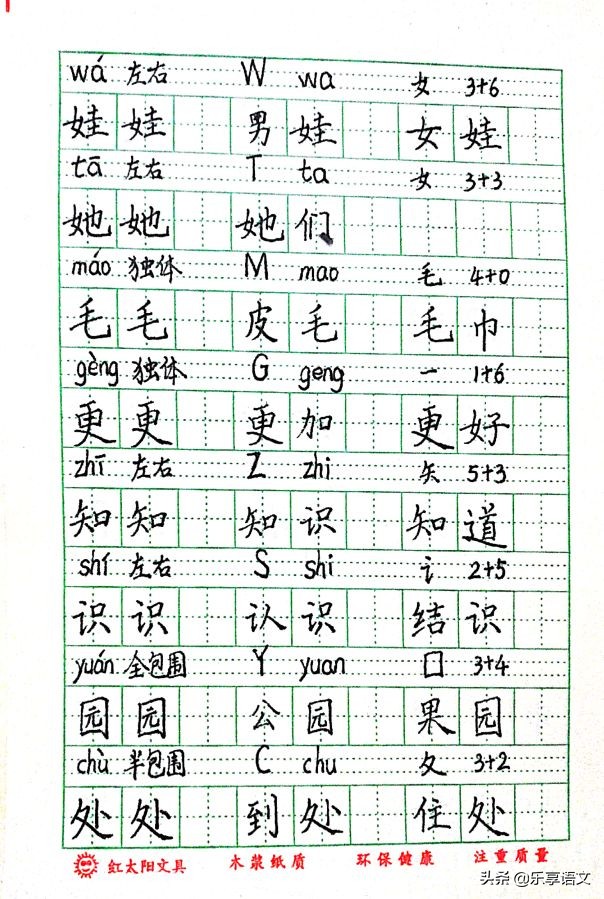 wá 左右 W wa 女 3+6
娃 娃 男 娃 女 娃
tā 左右 T ta 女 3+3
她 她 她 们
máo 独体 M mao 毛 4+0
毛 毛 皮 毛 毛 巾
gèng 独体 G geng 一 1+6
更 更 更 加 更 好
zhī 左右 Z zhi 矢 5+3
知 知 知 识 知 道
shí 左右 S shi 讠 2+5
识 识 认 识 结 识
yuán 全包围 Y yuan 囗 3+4
园 园 公 园 果 园
chù 半包围 C chu 夂 3+2
处 处 到 处 住 处
红太阳文具 木浆纸质 环保健康 注重质量
头条 @乐享语文